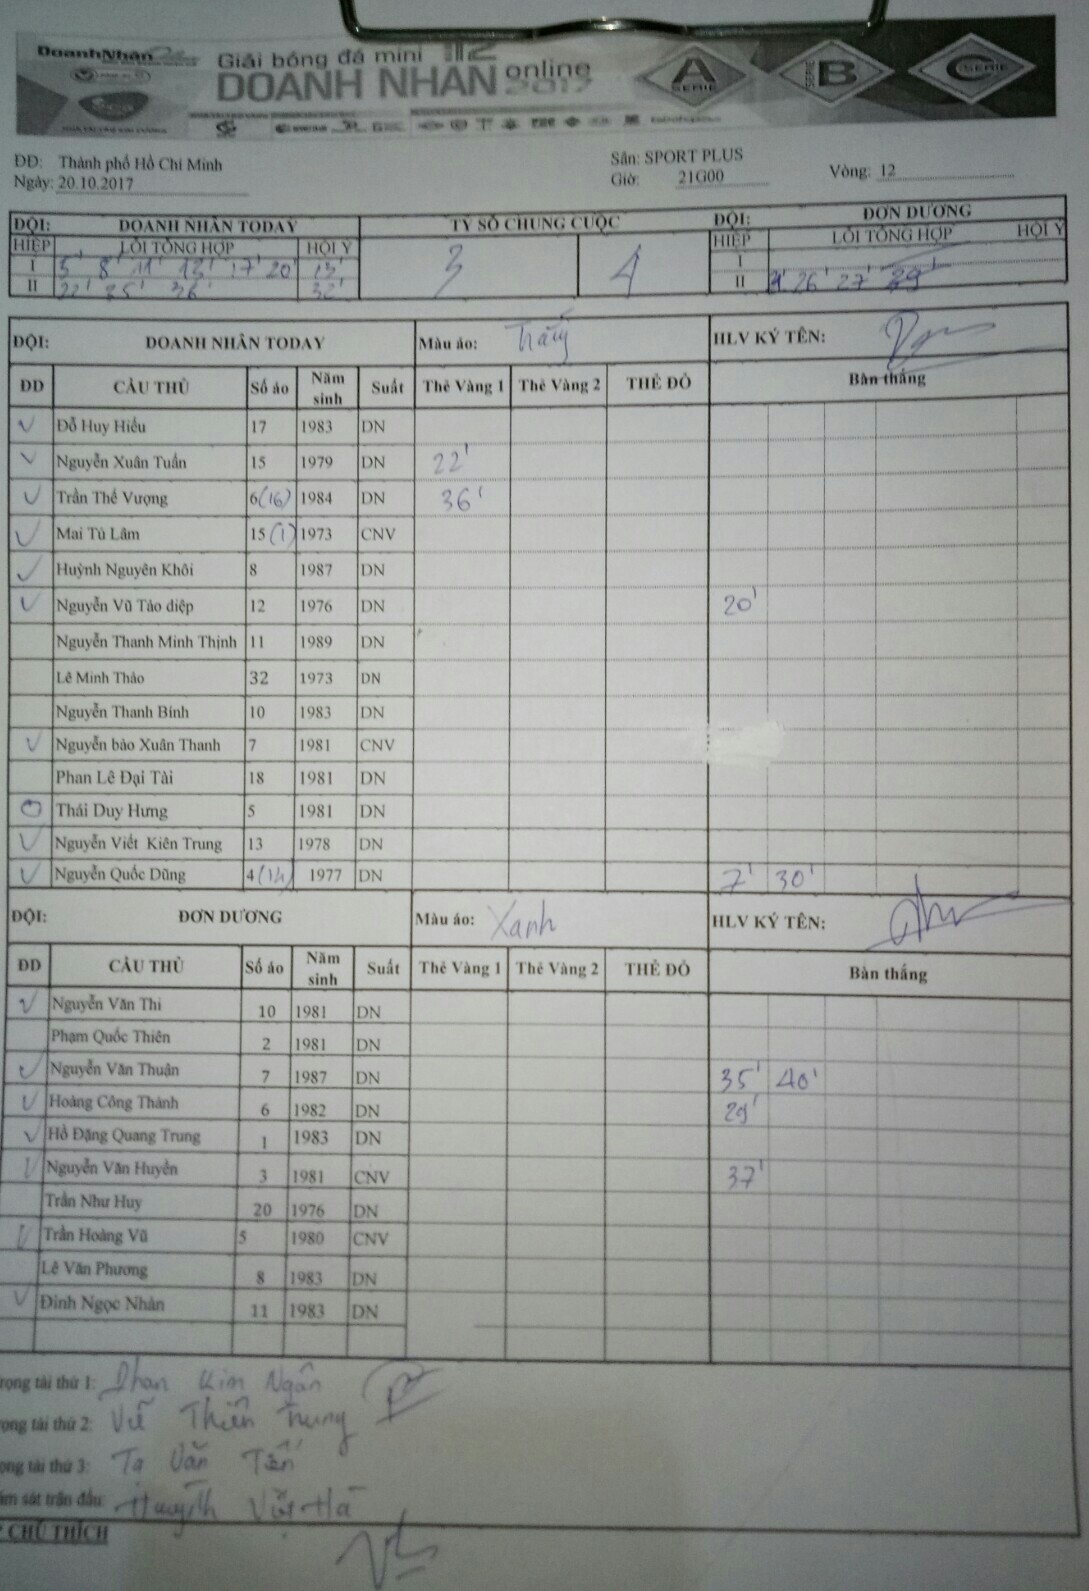 DoanhNhân
Giải bóng đá mini 112
DOANH NHAN online 2017
A SERIE
SERIE B
C SERIE
ĐĐ: Thành phố Hồ Chí Minh
Sân: SPORT PLUS
Ngày: 20.10.2017
Giờ: 21G00
Vòng: 12
ĐỘI: DOANH NHÂN TODAY TỶ SỐ CHUNG CUỘC ĐỘI: ĐƠN DƯƠNG
HIỆP LỖI TỔNG HỢP HỘI Ý 3 4 HIỆP LỖI TỔNG HỢP HỘI Ý
I 5' 8' 11' 13' 17' 20' 13' I
II 22' 25' 36' 32' II 26' 27' 29'
ĐỘI: DOANH NHÂN TODAY Màu áo: Trắng HLV KÝ TÊN:
ĐD CẦU THỦ Số áo Năm sinh Suất Thẻ Vàng 1 Thẻ Vàng 2 THẺ ĐỎ Bàn thắng
Đỗ Huy Hiếu 17 1983 DN
Nguyễn Xuân Tuấn 15 1979 DN 22'
Trần Thế Vượng 6(16) 1984 DN 36'
Mai Tú Lâm 15(1) 1973 CNV
Huỳnh Nguyên Khôi 8 1987 DN
Nguyễn Vũ Tảo điệp 12 1976 DN 20'
Nguyễn Thanh Minh Thịnh 11 1989 DN
Lê Minh Thảo 32 1973 DN
Nguyễn Thanh Bình 10 1983 DN
Nguyễn bảo Xuân Thanh 7 1981 CNV
Phan Lê Đại Tài 18 1981 DN
Thái Duy Hưng 5 1981 DN
Nguyễn Viết Kiên Trung 13 1978 DN
Nguyễn Quốc Dũng 4(14) 1977 DN 7' 30'
ĐỘI: ĐƠN DƯƠNG Màu áo: Xanh HLV KÝ TÊN:
ĐD CẦU THỦ Số áo Năm sinh Suất Thẻ Vàng 1 Thẻ Vàng 2 THẺ ĐỎ Bàn thắng
Nguyễn Văn Thi 10 1981 DN
Phạm Quốc Thiên 2 1981 DN
Nguyễn Văn Thuận 7 1987 DN 35' 40'
Hoàng Công Thành 6 1982 DN 29'
Hồ Đặng Quang Trung 1 1983 DN
Nguyễn Văn Huyền 3 1981 CNV 37'
Trần Như Huy 20 1976 DN
Trần Hoàng Vũ 5 1980 CNV
Lê Văn Phương 8 1983 DN
Đinh Ngọc Nhân 11 1983 DN
rọng tài thứ 1: Phan Kim Ngân
ọng tài thứ 2: Vũ Thiên Trung
ọng tài thứ 3: Tạ Văn Tiến
ám sát trận đấu: Huỳnh Việt Hà
CHÚ THÍCH